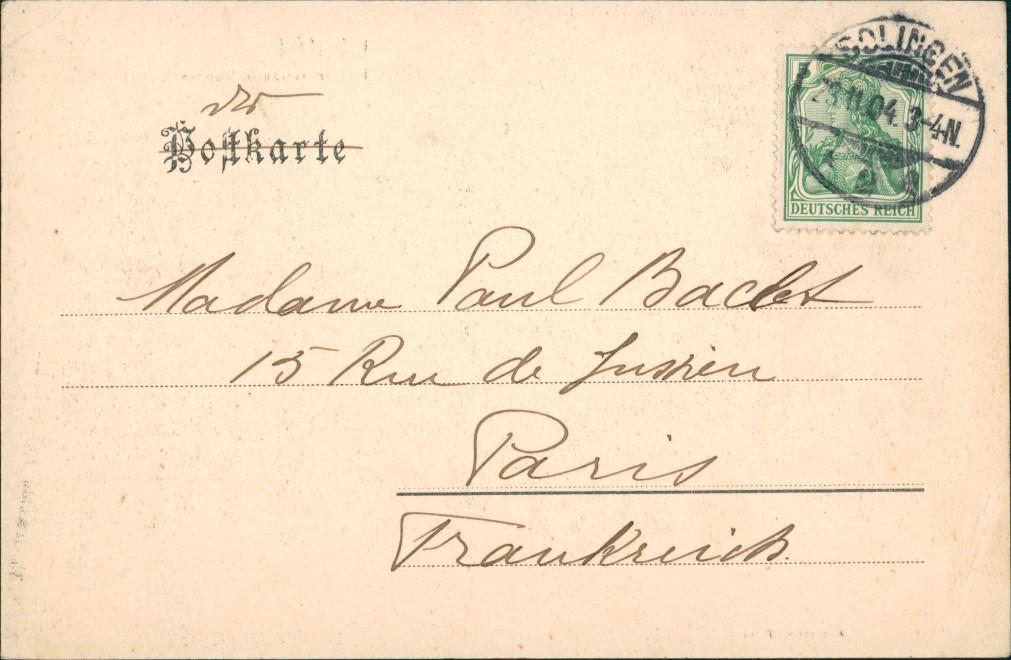 SOLINGEN
11.04. 3-4N.
Postkarte
5
DEUTSCHES REICH
Madame Paul
15 Rue de Jussieu
Paris
Frankreich